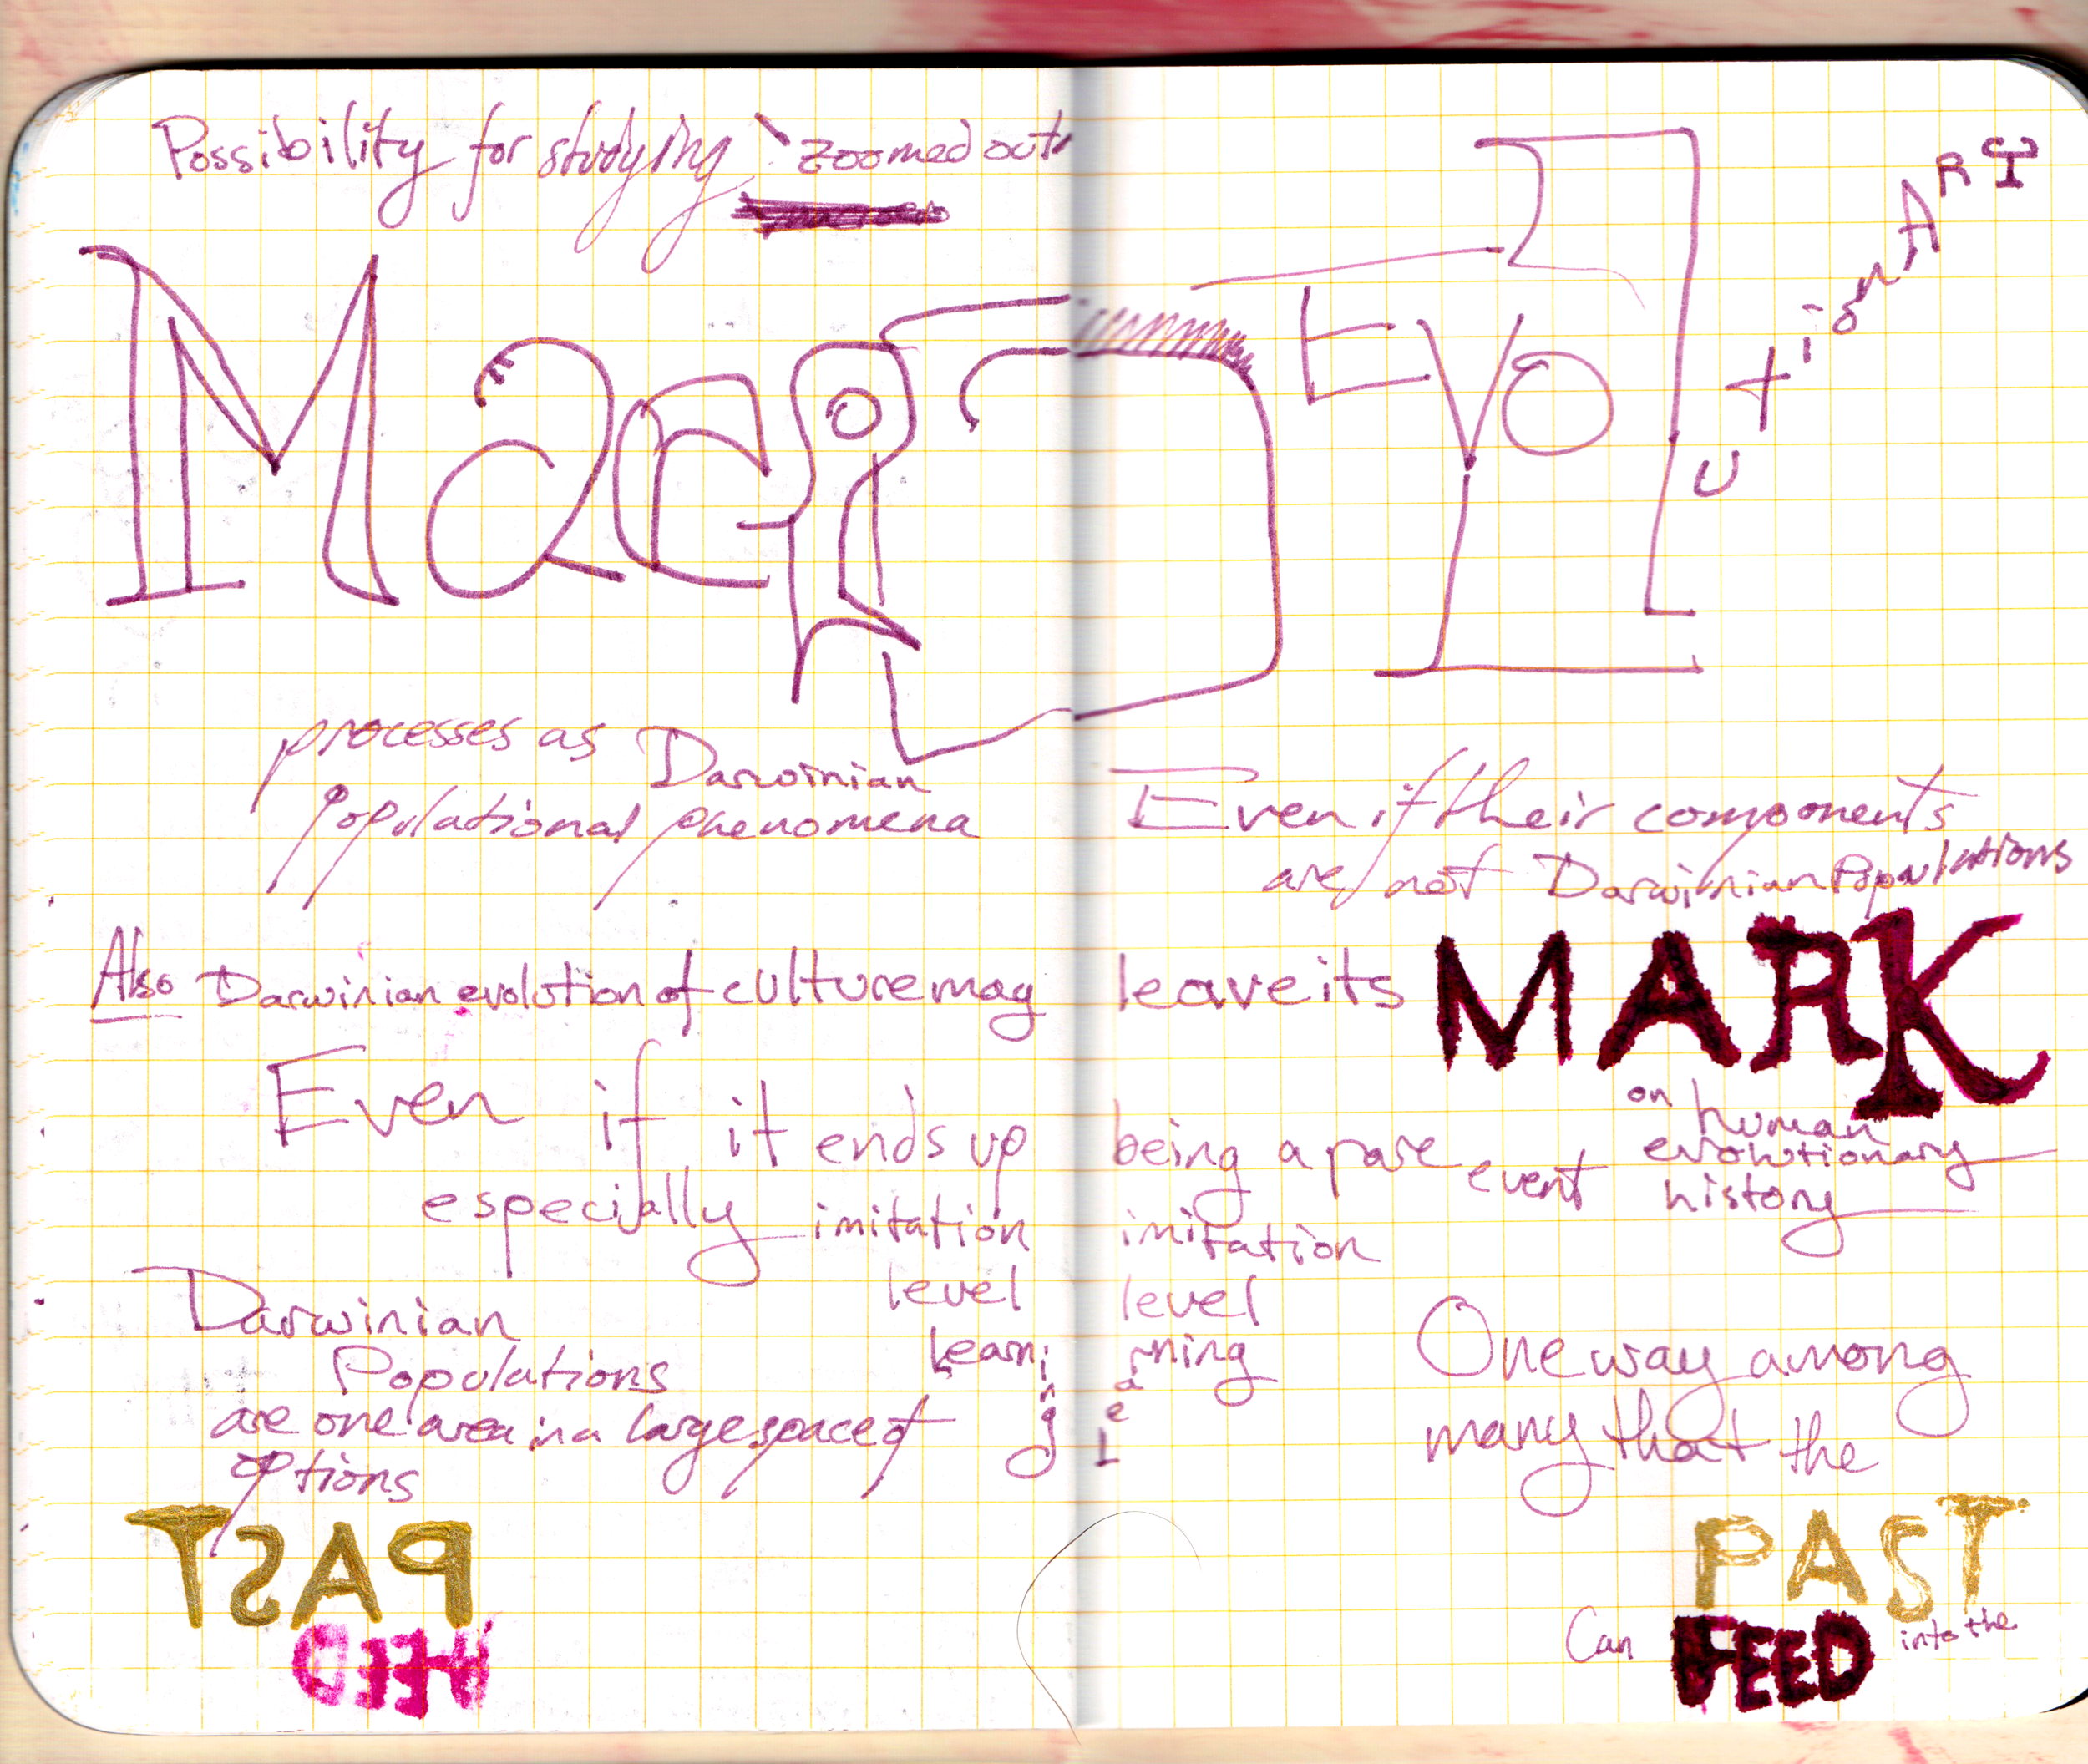 Possibility for studying "zoomed out"
MacrO EVOlutionARY
processes as Darwinian
populational phenomena
Even if their components
are not Darwinian Populations
Also Darwinian evolution of culture may leave its MARK
on human
evolutionary
history
Even if it ends up being a rare event
especially imitation imitation
level level
Learning Learning
Darwinian
Populations
are one area in a large space of
options
One way among
many that the
PAST
Can FEED into the
PAST
FEED